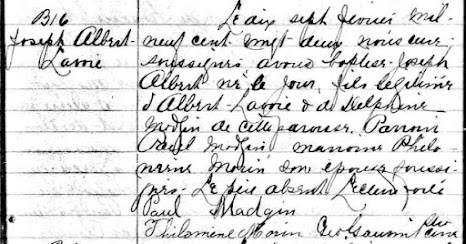 B16
Joseph Albert
Lavoie
Le dix sept février mil
neuf cent vingt deux nous curé
soussigné avons baptisé Joseph
Albert né le jour, fils légitime
d'Albert Lavoie & de Delphine
Modjin de cette paroisse. Parrain
Paul Modjin, marraine Philo-
mène Morin son épouse soussi-
gnés. Le père absent. Lecture faite
Paul Madgin
Philomène Morin Ptre curé